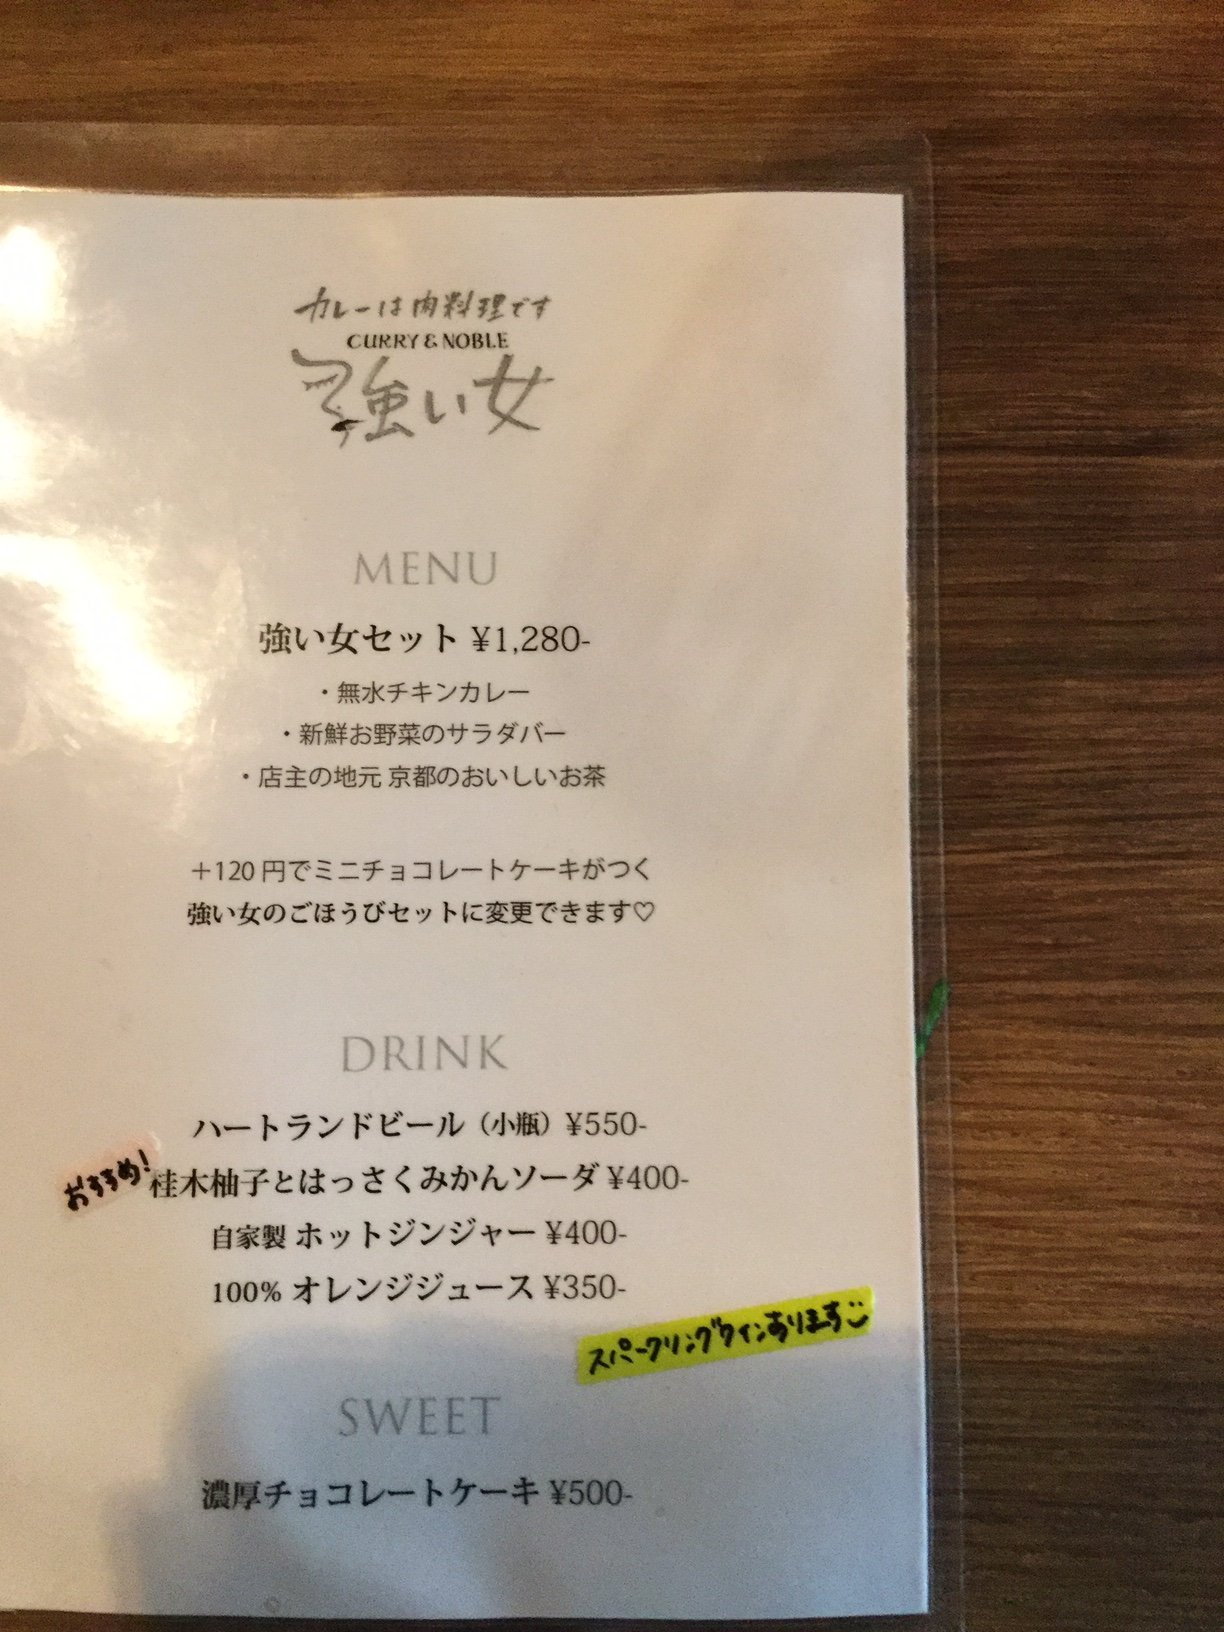 カレーは肉料理です
CURRY & NOBLE
強い女
MENU
強い女セット ¥1,280-
・無水チキンカレー
・新鮮お野菜のサラダバー
・店主の地元 京都のおいしいお茶
+120 円でミニチョコレートケーキがつく
強い女のごほうびセットに変更できます♡
DRINK
ハートランドビール（小瓶）¥550-
おすすめ!
桂木柚子とはっさくみかんソーダ ¥400-
自家製 ホットジンジャー ¥400-
100% オレンジジュース ¥350-
スパークリングワインあります
SWEET
濃厚チョコレートケーキ ¥500-